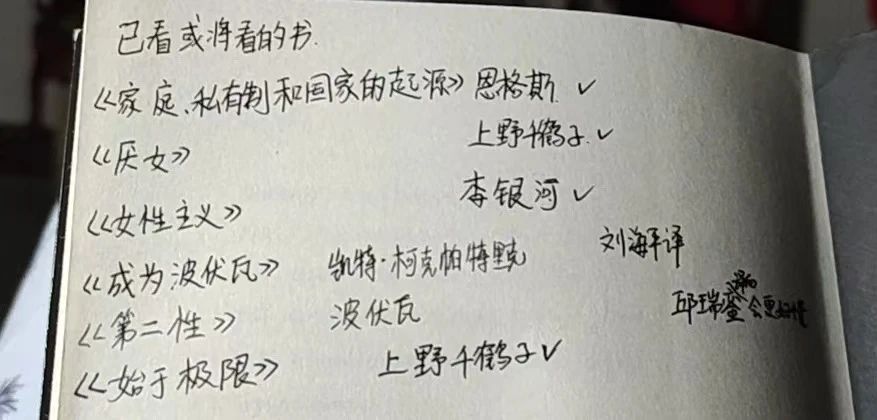 已看或将看的书.
《家庭、私有制和国家的起源》恩格斯 ✓
《厌女》 上野千鹤子. ✓
《女性主义》 李银河 ✓
《成为波伏瓦》 凯特·柯克帕特里克 刘海平译
《第二性》 波伏瓦 邱瑞銮 会更好懂
《始于极限》 上野千鹤子 ✓